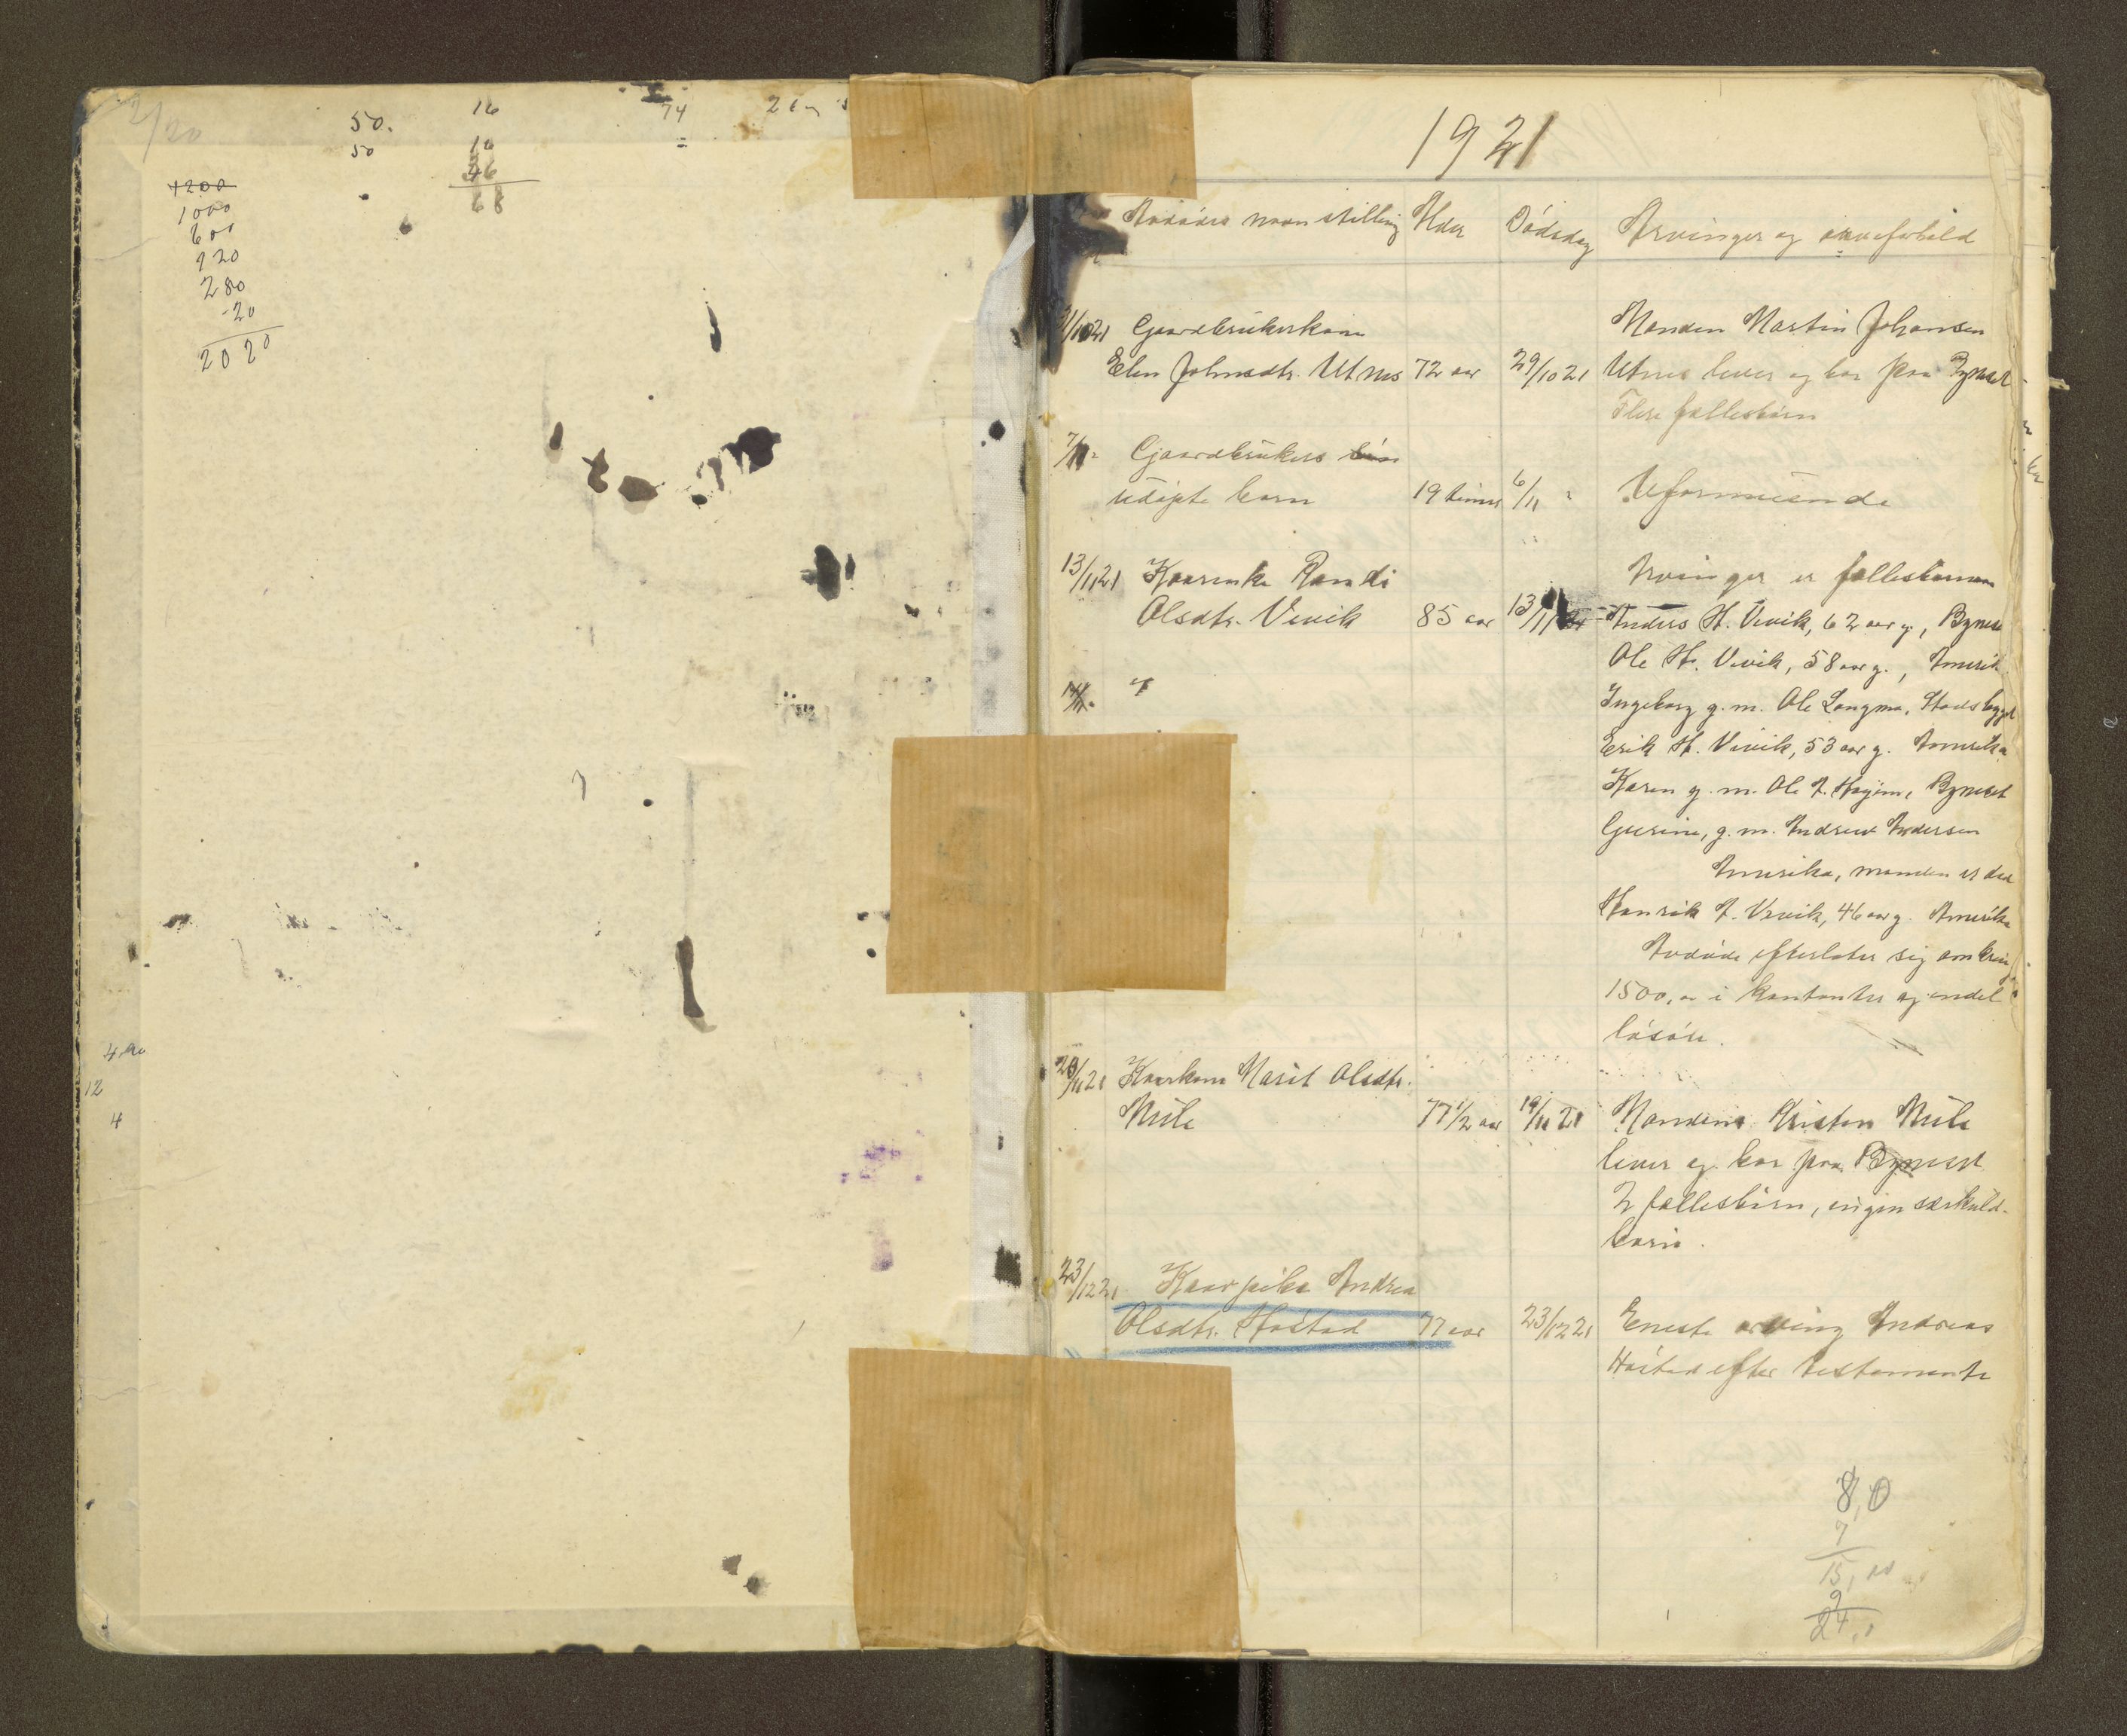 2/20
50.
50
16
10
36
68
74
=
1200
1000
600
120
280
-20
2020
4
12
4
1921
Avdødes navn stilling Alder Dødsdag Arvinger og arveforhold
/1021 Gaardbrukerkone
Elen Johnsdtr. Utnes 72 aar 29/10 21
Manden Martin Johansen
Utnes lever og bor paa Byneset
Flere fællesbörn
7/11 " Gaardbrukers
udöpte barn 19 timer 6/11 " Uformuende
13/11 21 Kaarenke Randi
Olsdtr. Vevik 85 aar 13/11 21
Arvinger er fællesbarnene
Anders H. Vevik, 62 aar g., Bynese
Ole H. Vevik, 58 aar g., Amerik
Ingeborg g. m. Ole Langmo, Stadsbygd
Erik H. Vevik, 53 aar g. Amerika
Karen g. m. Ole A. Byneset
Gurine, g. m. Andreas Andersen
Amerika, manden er død
Henrik A. Vevik, 46 aar g. Amerika
Avdøde efterlater sig omkring
1500,00 i kontanter og endel
lösöre.
20/11 21 Kaarkone Marit Olsdtr.
Mule 77 1/2 aar 19/11 21 Manden Kristen Mule
lever og bor paa Byneset
2 fællesbörn, ingen særkuld-
barn.
23/12 21 Kaarpike Andrea
Olsdtr. Høstad 77 aar 23/12 21 Eneste arving Andreas
Höstad efter testamente
8,0
7
15,00
9
24,0